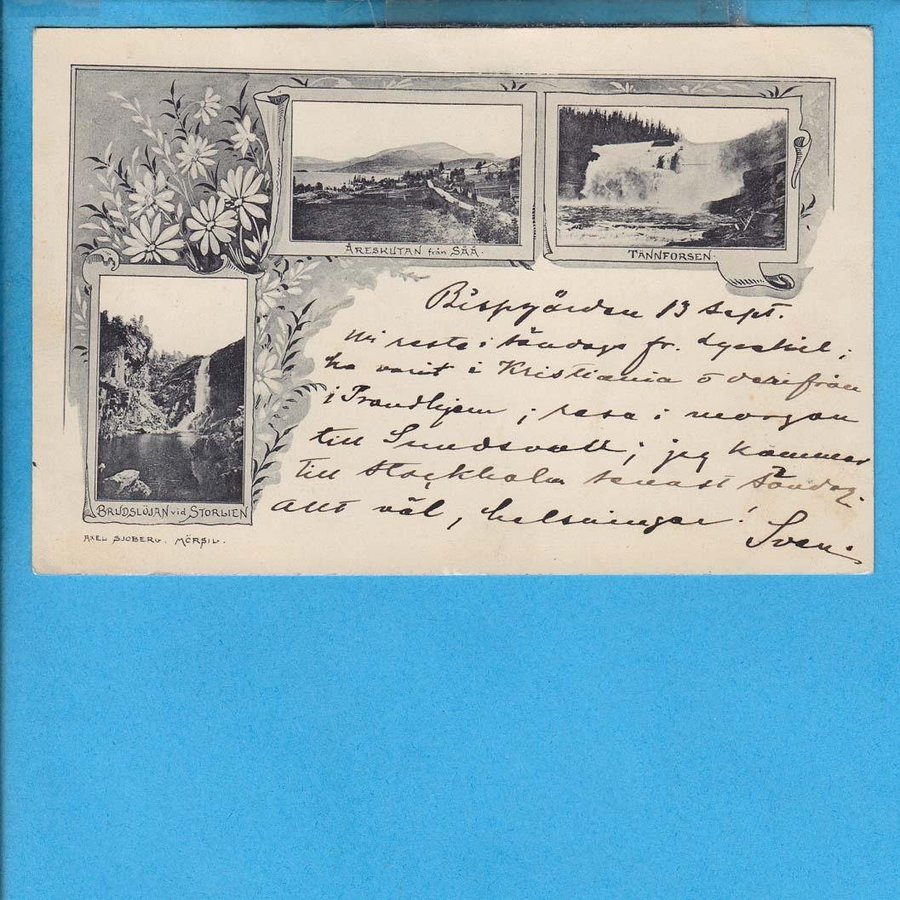 ÅRESKUTAN från SÅÅ.
TANNFORSEN.
BRUDSLÖJAN vid STORLIEN
AXEL SJÖBERG. MÖRSIL.
Bispgården 13 sept.
Vi reste i söndags fr. Lysekil;
ha varit i Kristiania o derifrån
i Trondhjem; resa i morgon
till Sundsvall; jag kommer
till Stockholm senast Söndag.
Allt väl, helsningar!
Sven.